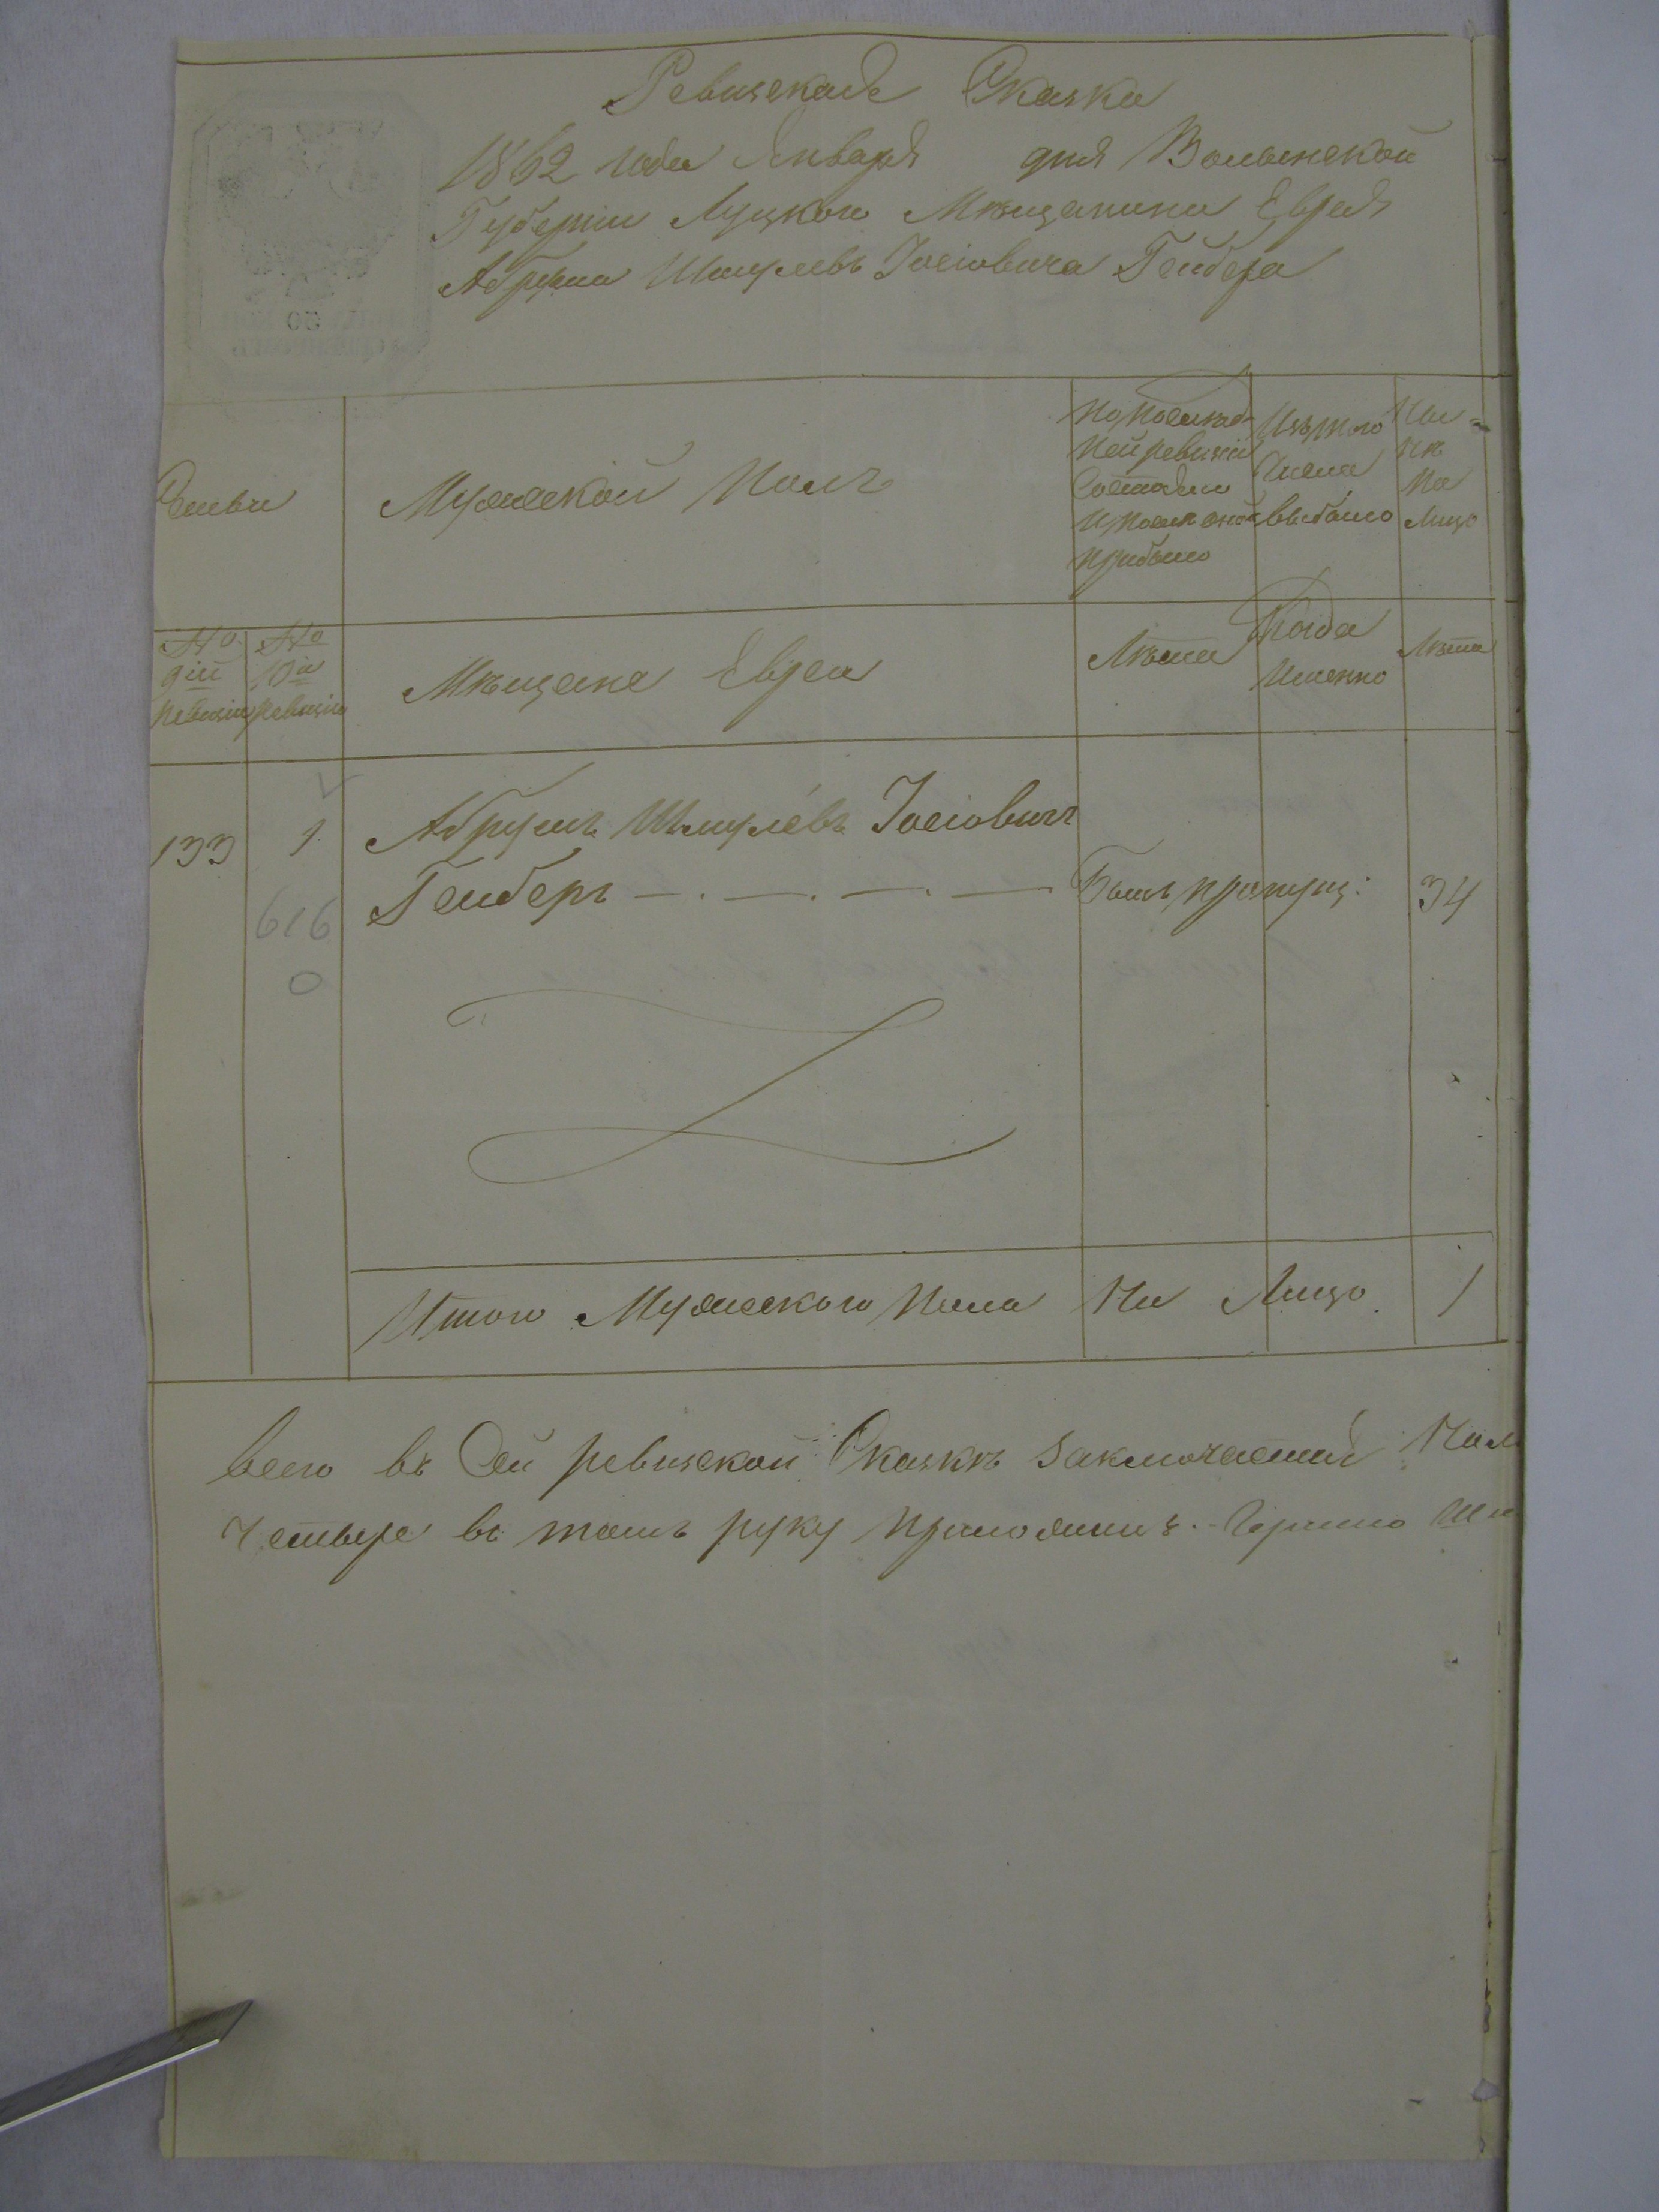 Ревизская Сказка
1862 года Января дня Волынской
Губерніи Луцкого Мѣщанина Еврея
Абрума Шмулевъ Іосіовича Гейбера
Мужеской Полъ
По послѣд-
ней ревизіи
состояло
и послѣ оной
прибыло
Изъ того
числа
выбыло
На-
ли
на
Лицо
№ 9й ревизіи
№ 10й ревизіи
Мѣщане Евреи
Лѣта
Когда
Именно
Лѣта
133 1 Абрумъ Шмулевъ Іосіовичъ
Гейберъ Былъ пропущ: 34
616
0
Итого Мужеского Пола На Лицо 1
Всего въ Сей ревизской Сказкѣ заключается
Четыре въ томъ руку приложилъ